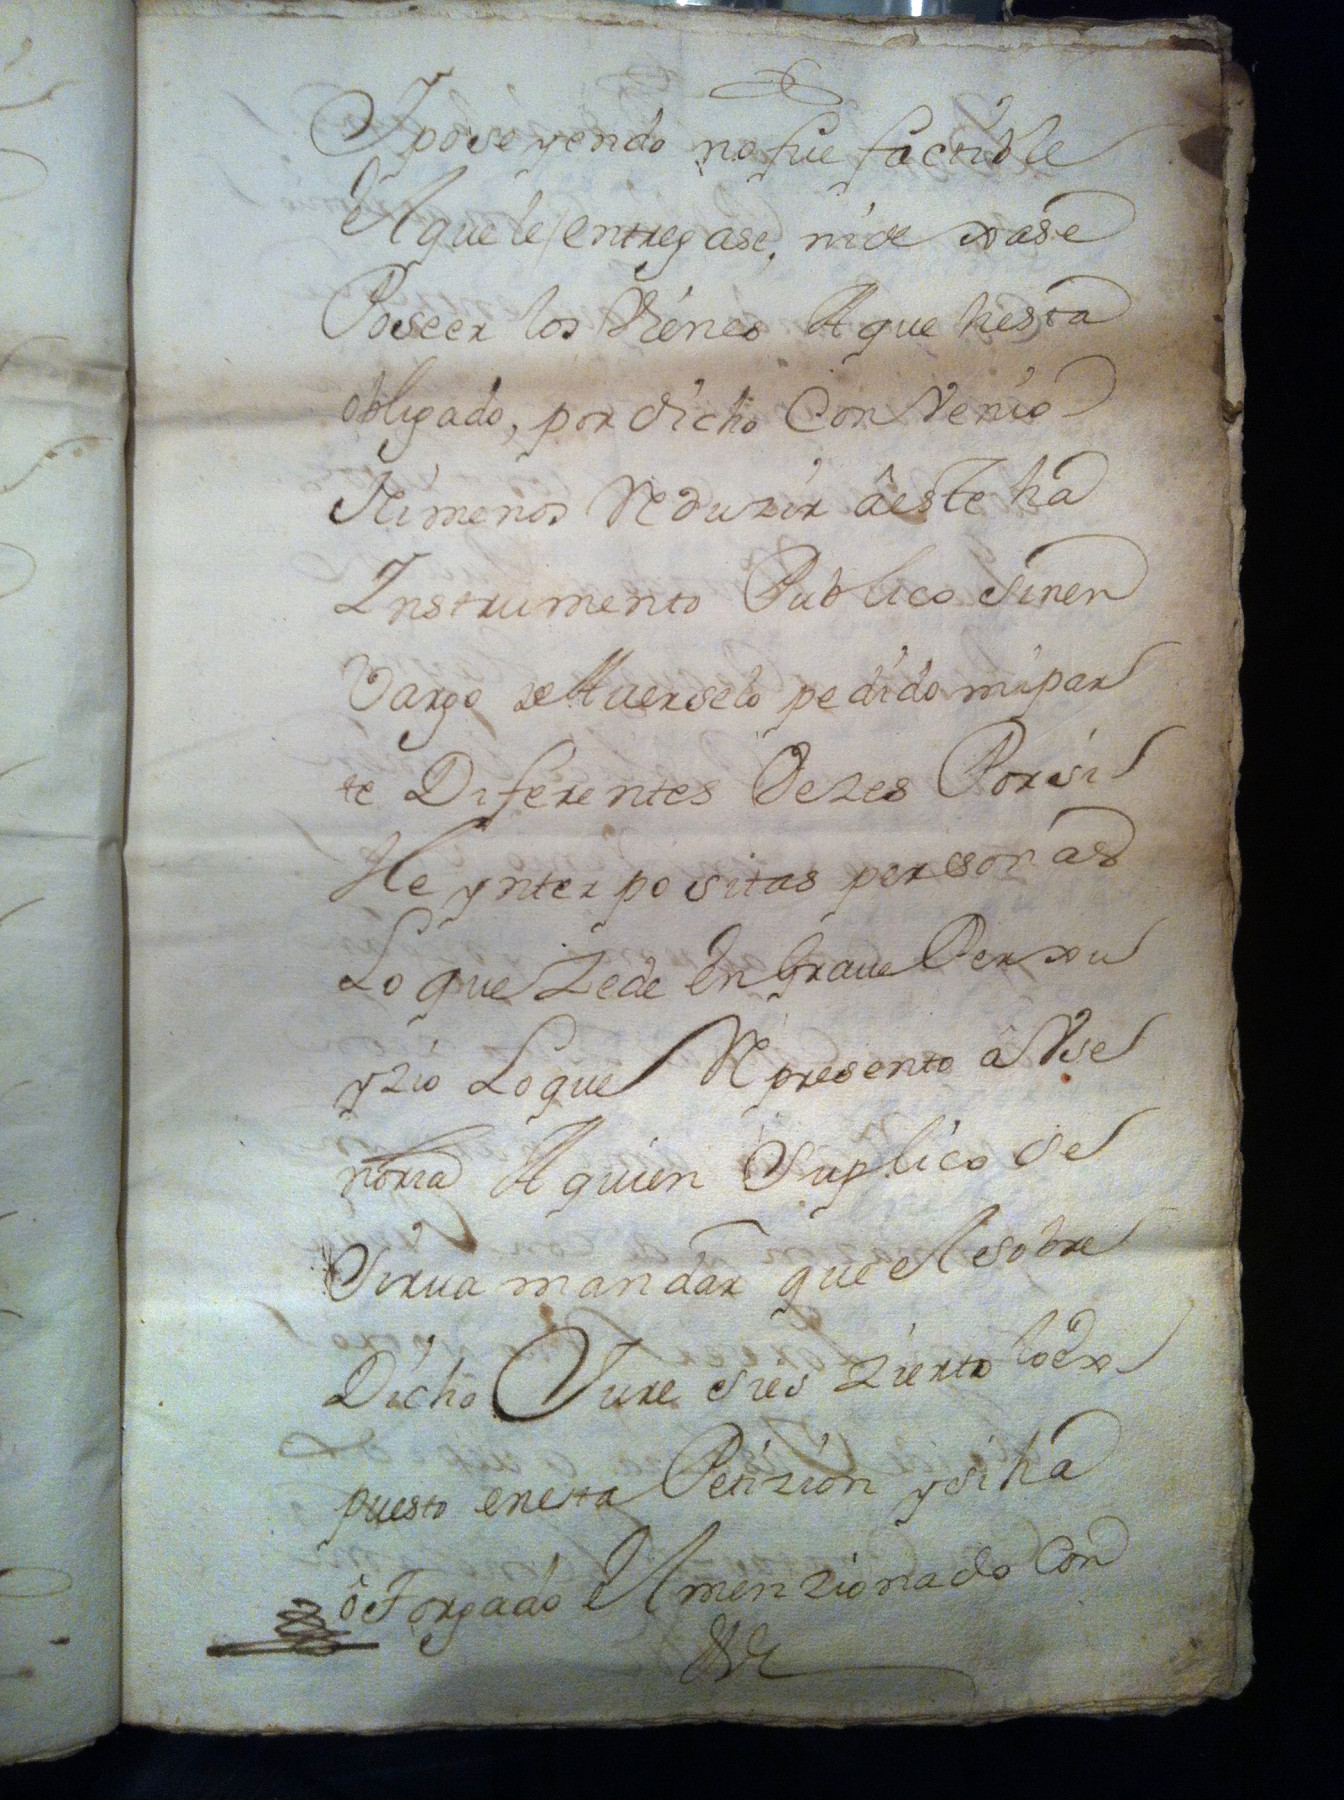 Y poseyendo no fue factible
el que le entregase, ni dexase
Poseer los vienes A que hesta
obligado, por dicho Convenio
Nimenos Reduzir âeste ha
Instrumento Publico sinen
vargo de Auerselo pedido mipar
te Diferentes Vezes Porsi
He ynterpositas personas
Lo que Zede En Graue Perxu
yzio Loque Represento â Vse
noria A quien Suplico se
Sirua mandar que el sobre
Dicho Jure sies Zierto lo ex
puesto enesta Petizion ysi ha
ôtorgado el menzionado Con
Ve